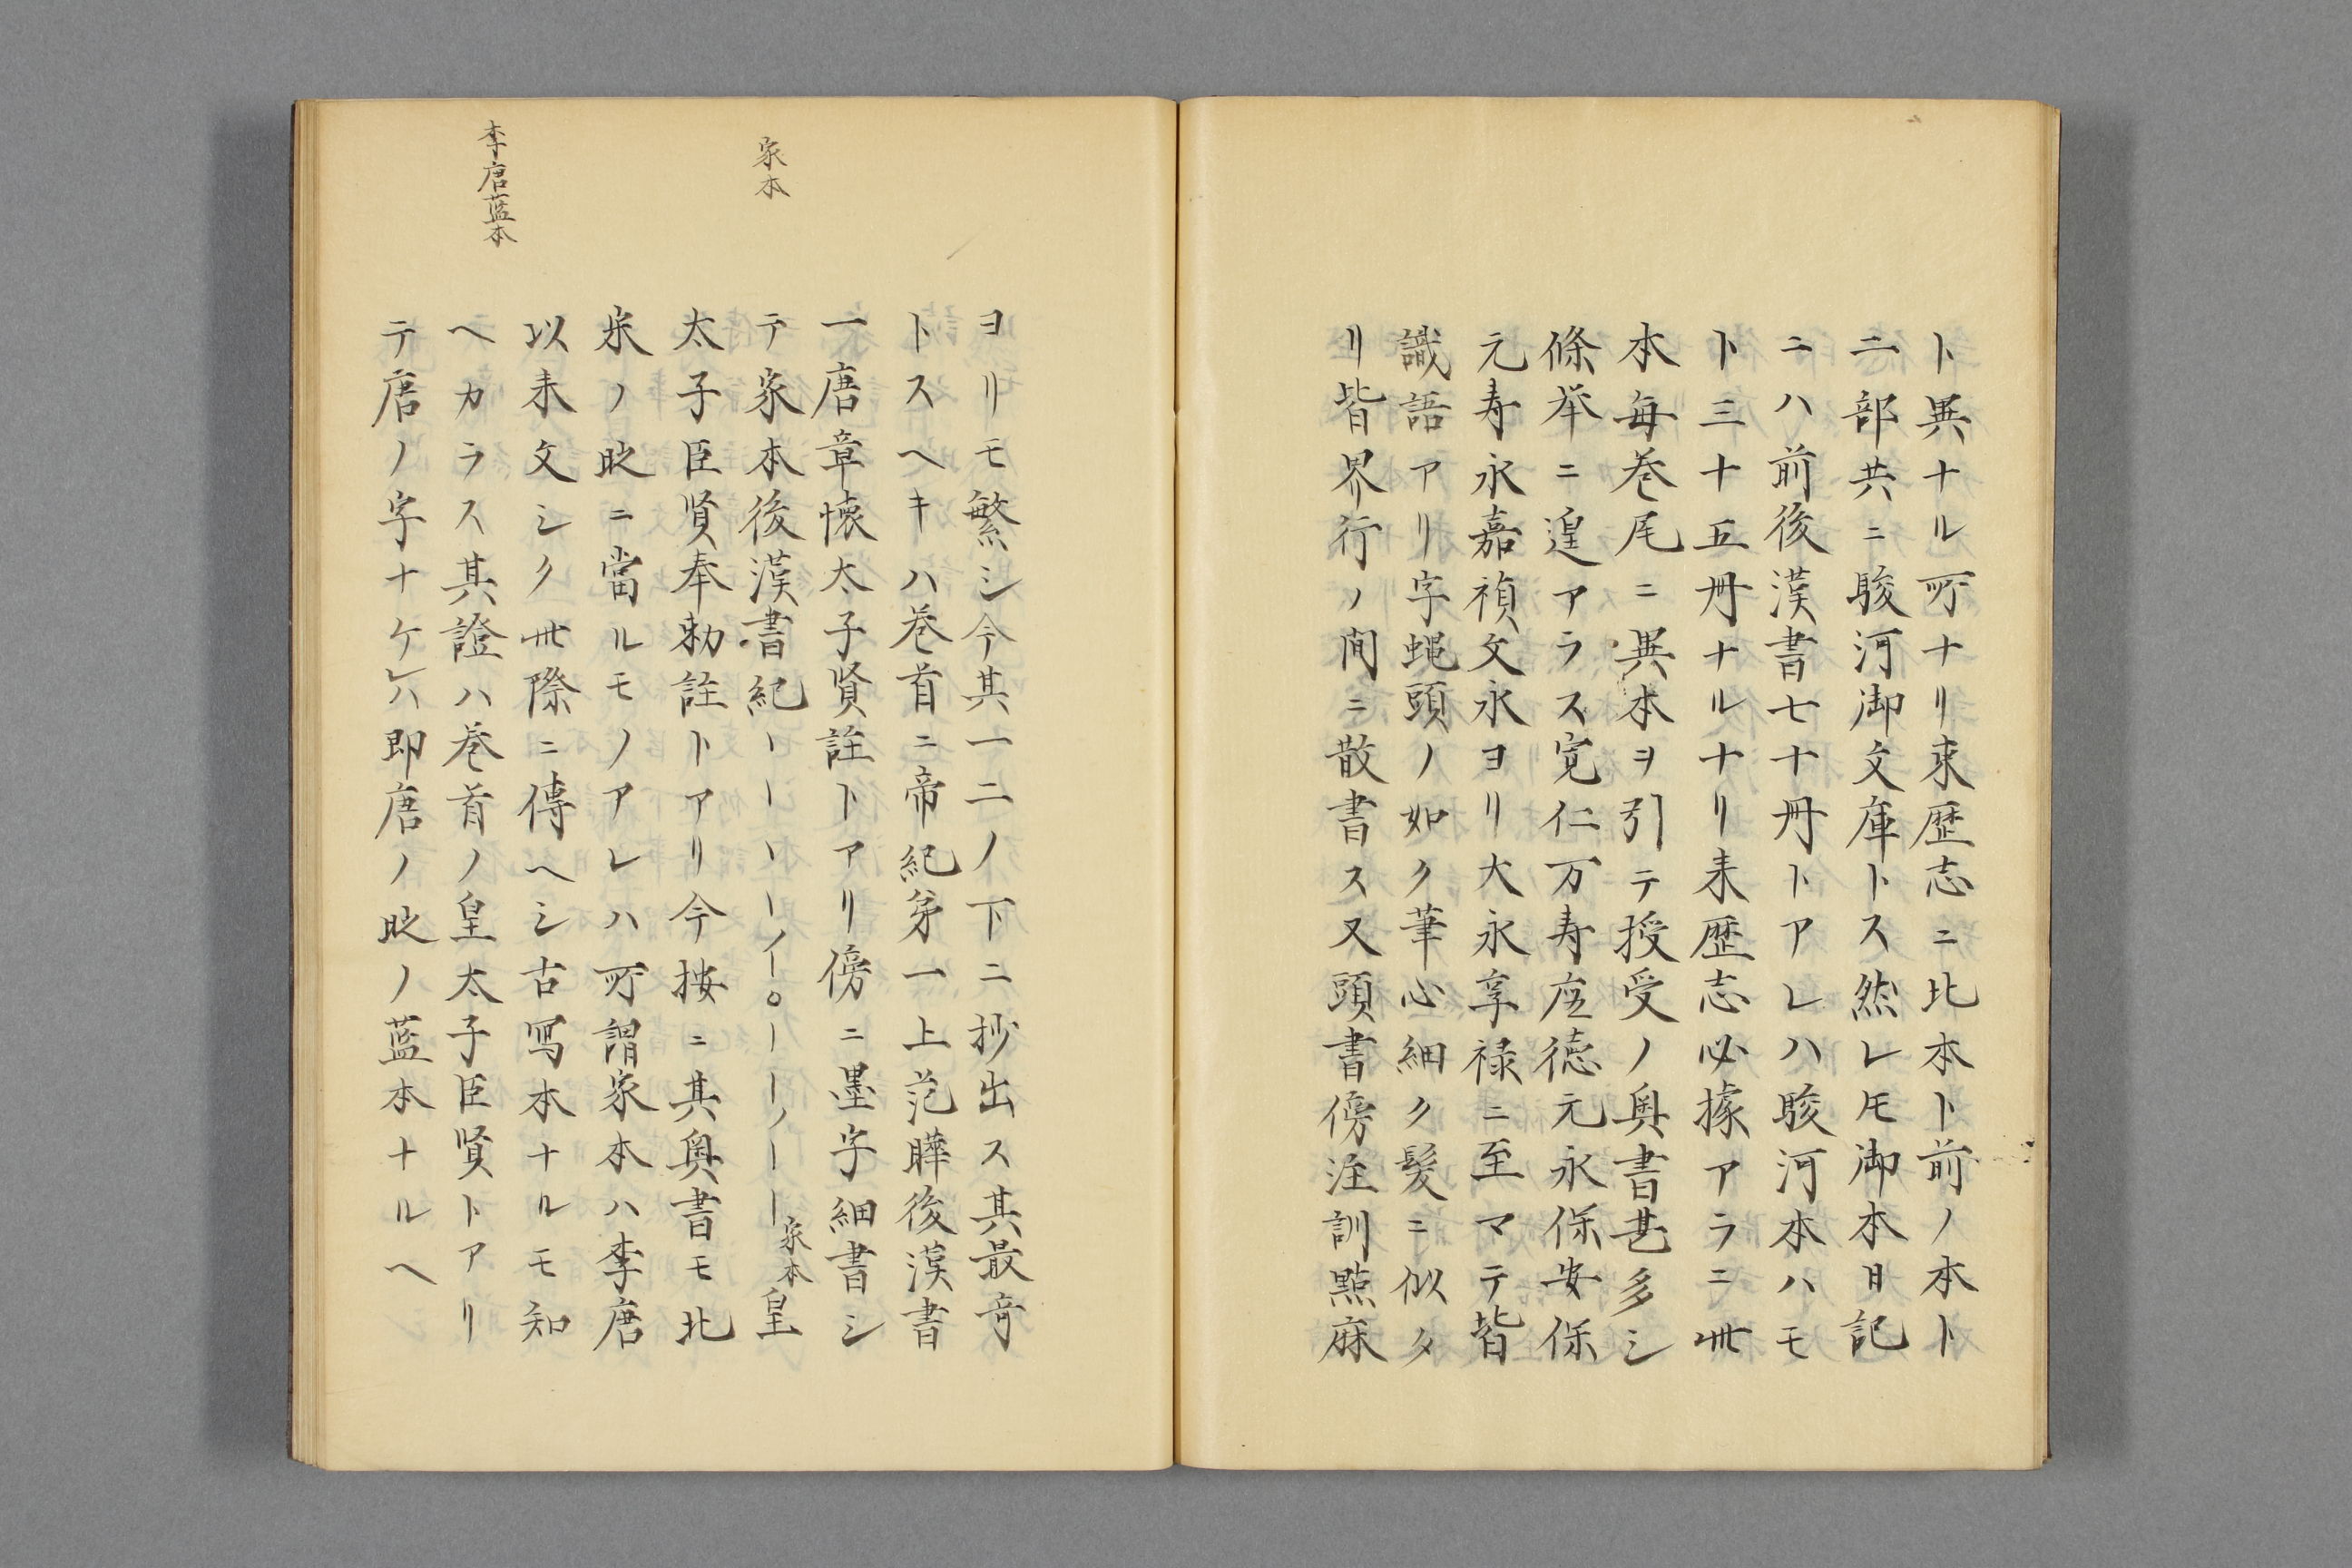 ト異ナル所ナリ来歴志ニ此本ト前ノ本ト
二部共ニ駿河御文庫トス然レ𪜈御本日記
ニハ前後漢書七十冊トアレハ駿河本ハモ
ト三十五冊ナルナリ来歴志必據アラニ卅
本毎巻尾ニ異本ヲ引テ授受ノ奥書甚多シ
條挙ニ遑アラス寛仁万寿應徳元永保安保
元寿永嘉禎文永ヨリ大永享禄ニ至マテ皆
識語アリ字蝿頭ノ如ク筆心細ク髪ニ似タ
リ皆界行ノ間ニ散書ス又頭書傍注訓點麻
ヨリモ繁シ今其一二ノ下ニ抄出ス其最奇
トスヘキハ巻首ニ帝紀第一上范曄後漢書
一唐章懐太子賢註トアリ傍ニ墨字細書シ
テ家本後漢書紀家本皇
太子臣賢奉勅註トアリ今按ニ其奥書モ北
宋ノ時ニ當ルモノアレハ所謂家本ハ李唐
以来文シク卅際ニ傳ヘシ古写本ナルモ知
ヘカラス其證ハ巻首ノ皇太子臣賢トアリ
テ唐ノ字ナケレハ即唐ノ時ノ藍本ナルヘ
家本
李唐藍本